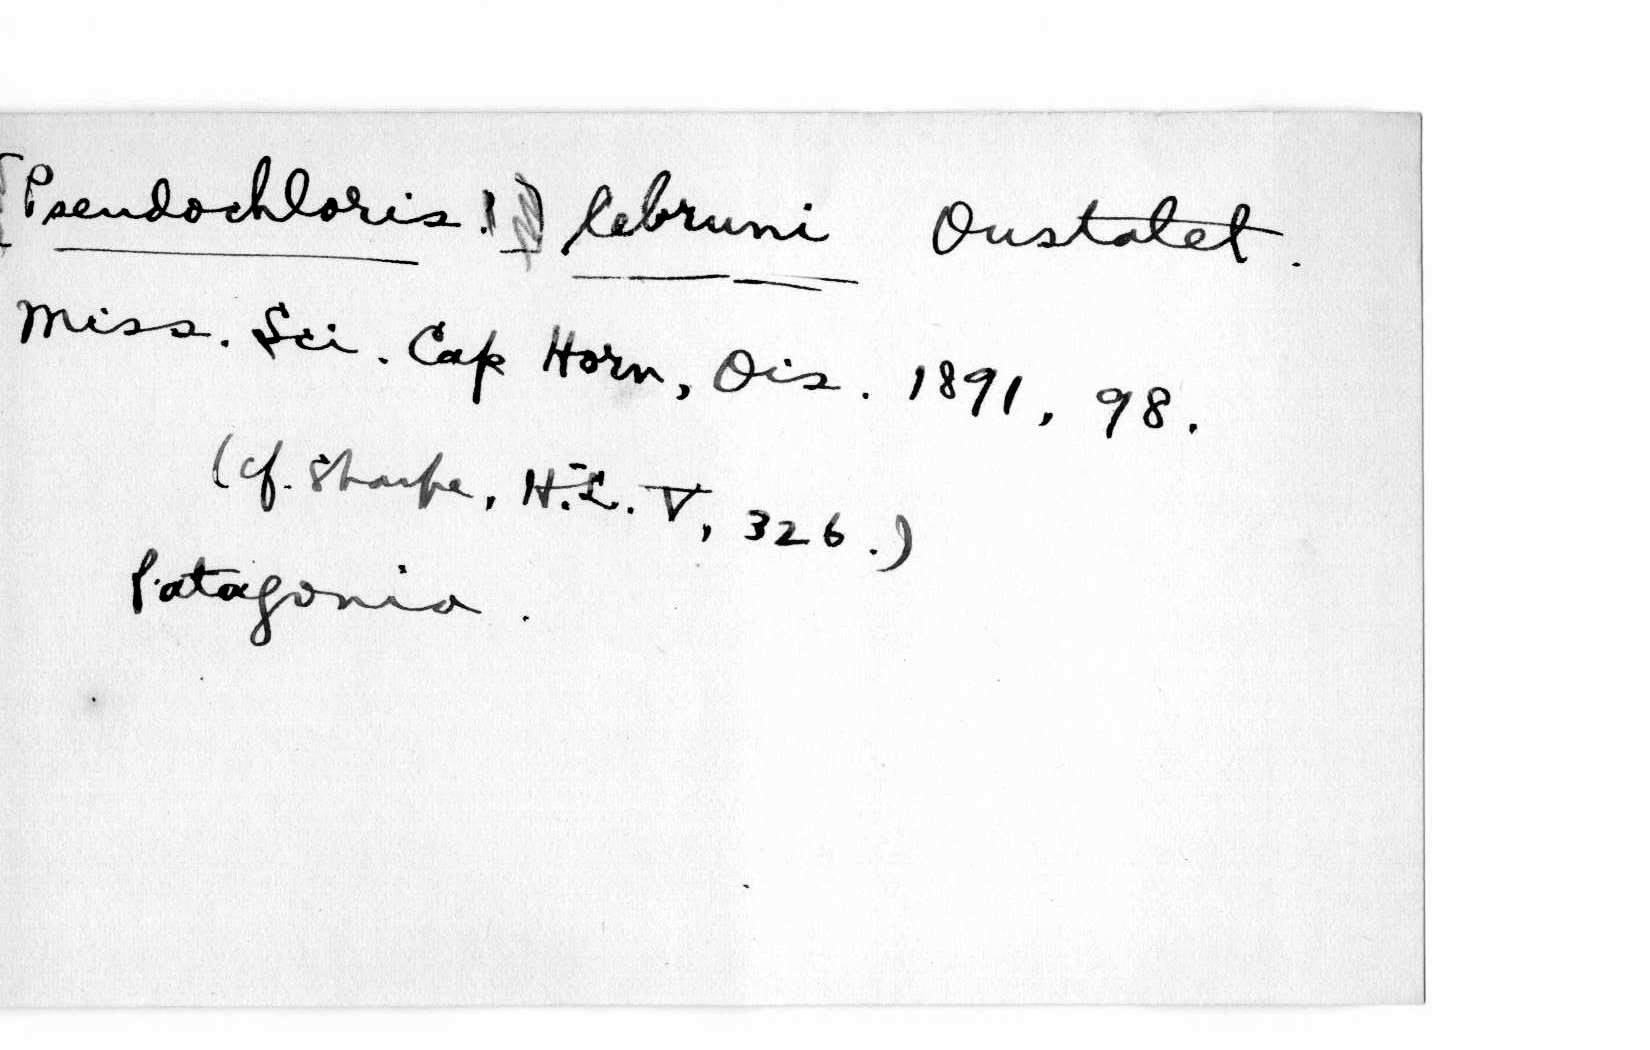 [Pseudochloris!] lebruni Oustalet.
Miss. Sci. Cap Horn, Ois. 1891, 98.
(cf. Sharpe, H.L. V, 326.)
Patagonia.